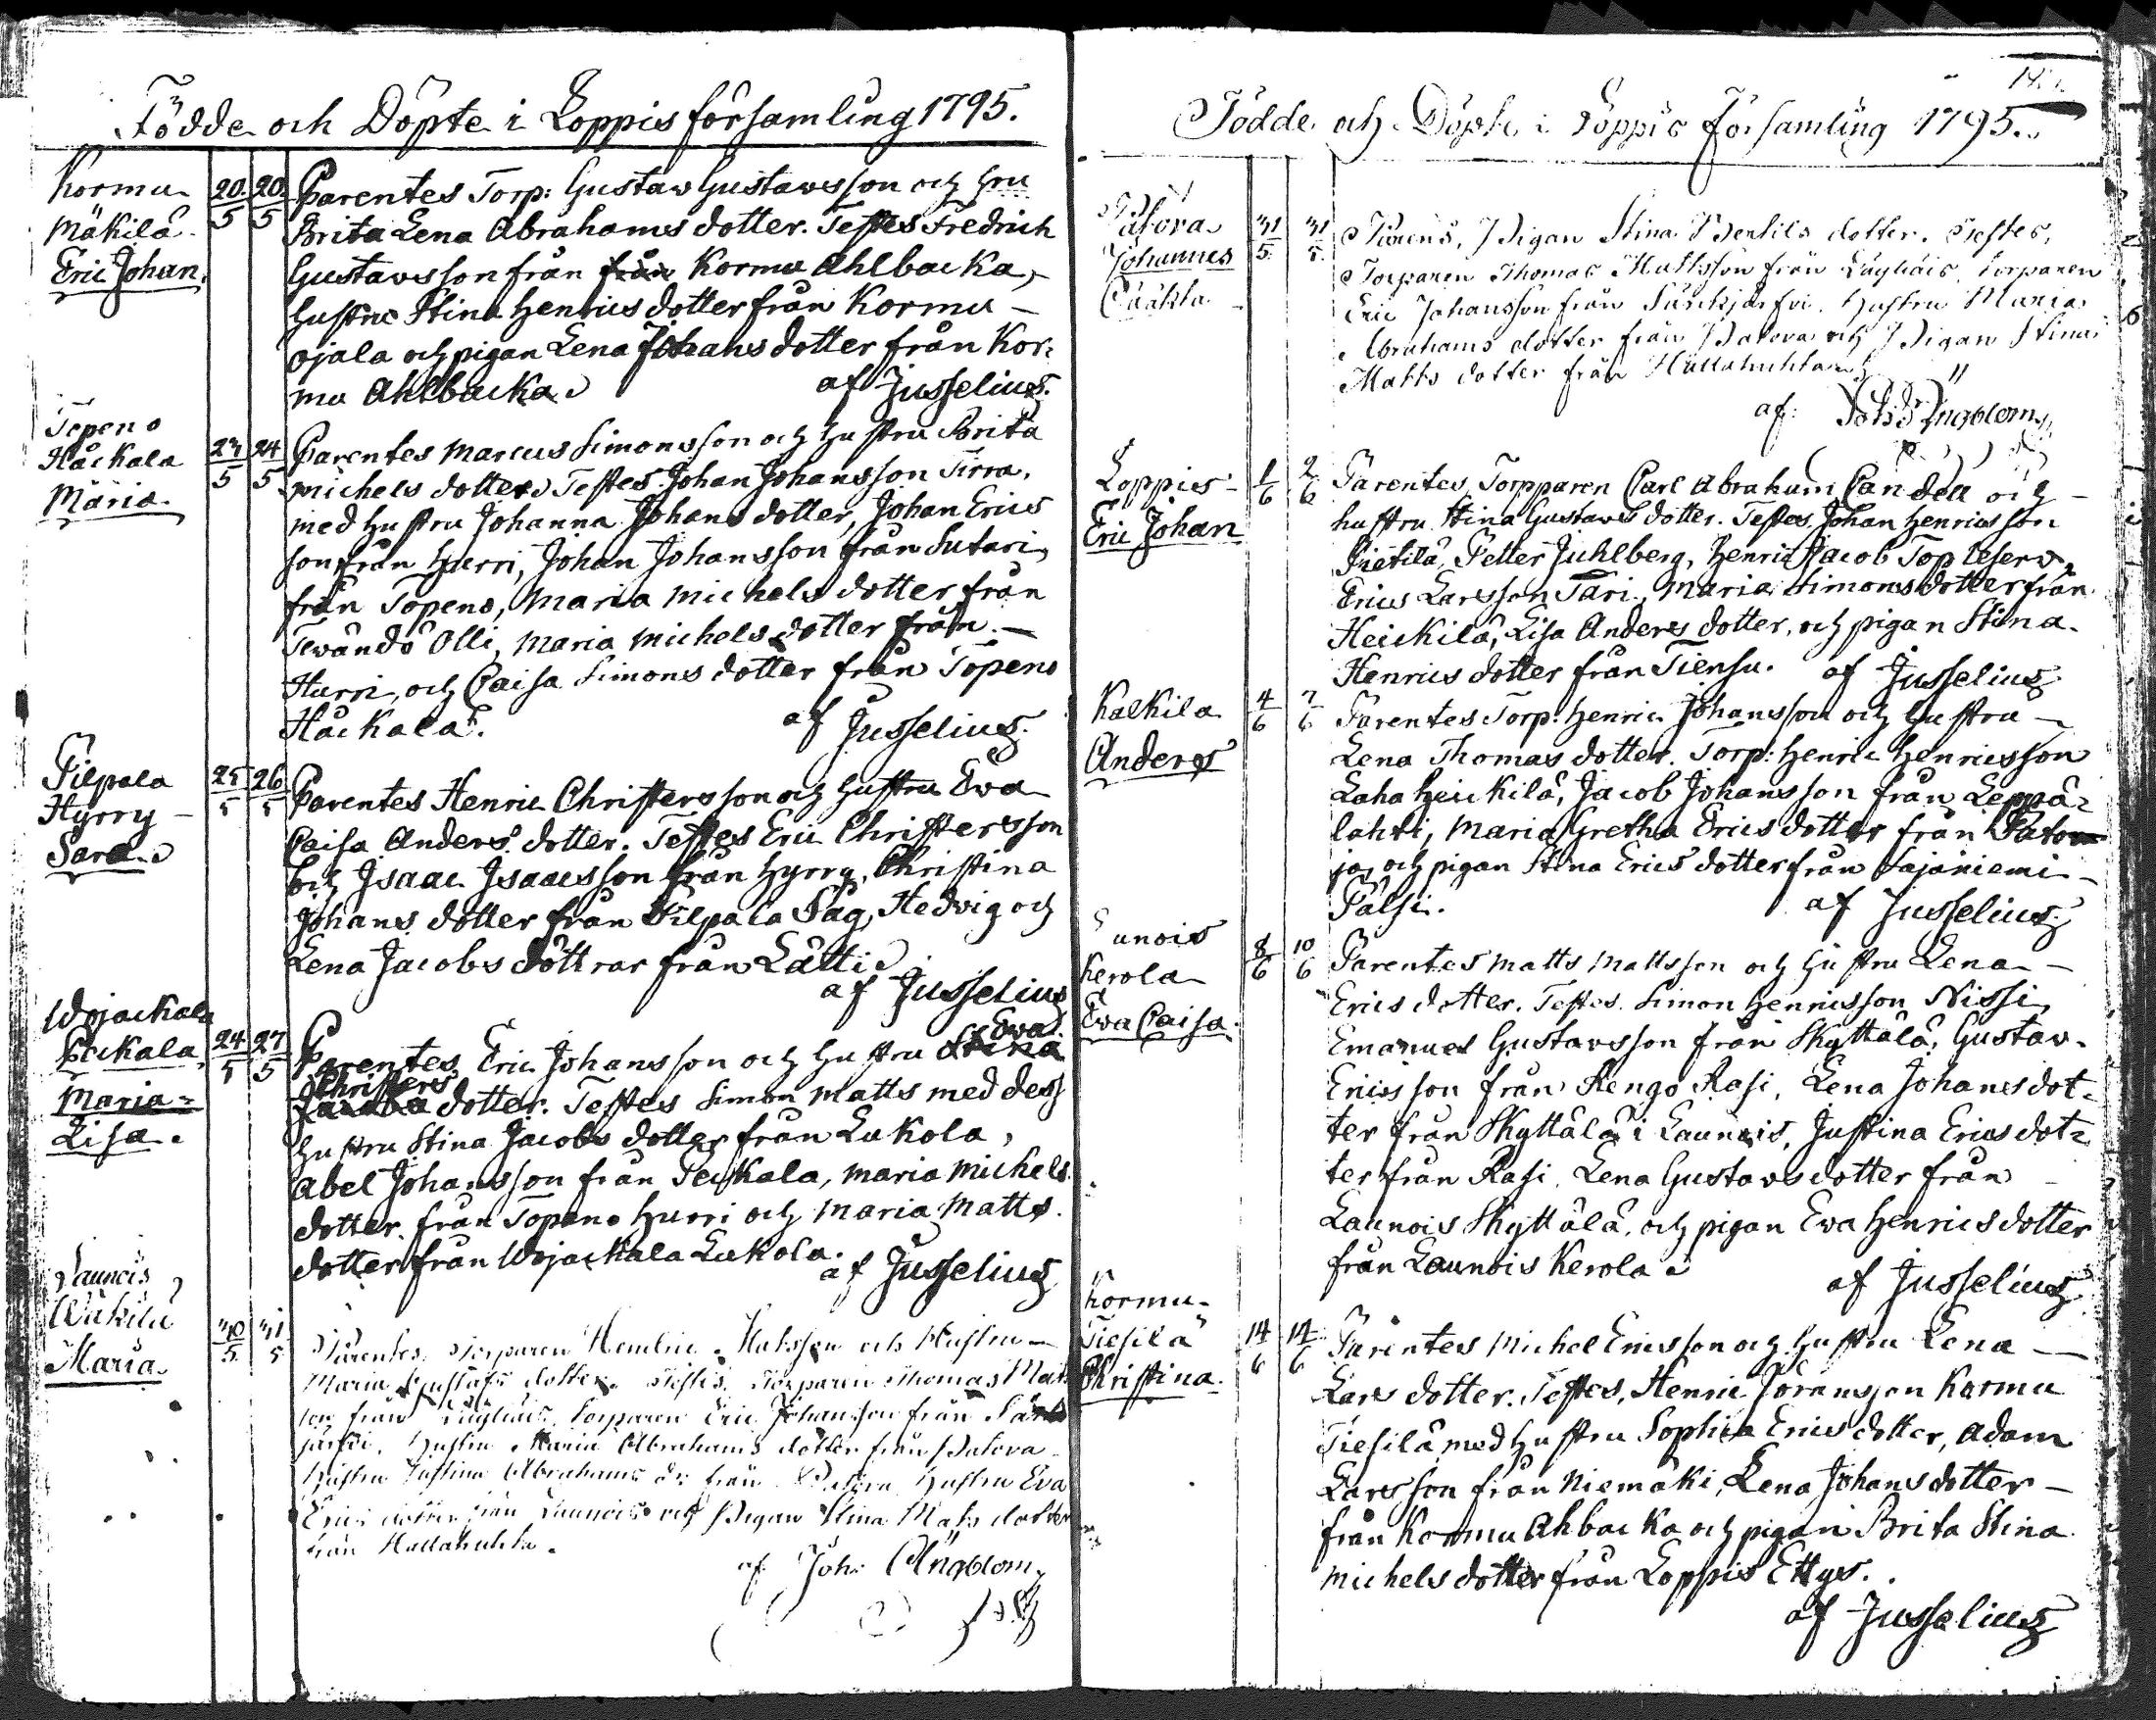 Födde och Döpte i Loppis församling 1795.
Kormu
Mäkilä
Eric Johan.
20. 20.
5 5
Parentes Torp: Gustaw Gustawsson och hru
Brita Lena Abrahams dotter. Testes Fredrich
Gustawsson från från Kormu Ahlbacka,
hustru Stina Henrics dotter från Kormu -
ojala och pigan Lena Johans dotter från Kor:
mu Ahlbacka.
af Jusselius.
Topeno
Häckala
Maria.
23 24
5 5
Parentes Marcus Simonsson och hustru Brita
Michels dotter. Testes Johan Johansson Tirra,
med hustru Johanna Johans dotter, Johan Erics
son från Hurri, Johan Johansson från Sutari,
från Topeno, Maria Michels dotter från
Tewändö Olli, Maria Michels dotter från -
Hurri, och Caisa Simons dotter från Topeno
Häckala.
af Jusselius.
Pilpala
Hyrry -
Sara.
25 26
5 5
Parentes Henric Christersson och hustru Ewa
Caisa Anders dotter. Testes Eric Christersson
och Isaac Isaacsson från Hyrry, Christina
Johans dotter från Pilpala Såg, Hedvig och
Lena Jacobs döttrar från Lätti.
af Jusselius
Wojackala
Peckala
Maria =
Lisa.
24 27
5 5
Parentes Eric Johansson och hustru Stina Ewa
Jacobs Christers dotter. Testes Simon Matts med dess
hustru Stina Jacobs dotter från Lukola,
Abel Johansson från Peckala, Maria Michels
dotter från Topeno Hurri och Maria Matts
dotter från Wojackala Lukola.
af Jusselius
Launois
Wäkilä
Maria.
30 31
5 5
Parentes Torparen Hendric Matsson och Hustru -
Maria Gustafs dotter. Testes Torparen Thomas Mats
son från Torparen Eric Johansson från Särk
järfvi, Hustru Maria Abrahams dotter från Patova
Hustru Justina Abrahams dr från Hustru Eva
Erics dotter från Launois och Pigan Stina Mats dotter
från Hallahuhta.
af Joh: Ångblom
Födde och Döpte i Loppis församling 1795.
Patova
Johannes
31 31
5 5
Parens, Pigan Stina Bertils dotter. Testes,
Torparen Thomas Mattsson från Torparen
Eric Johansson från Särckjärfvi, Hustru Maria
Abrahams dotter från Patova och Pigan Stina
Matts dotter från Hallahuhta
af: Joh: Ångblom
Loppis -
Eric Johan
1 2
6 6
Parentes Torpparen Carl Abraham Candell och -
hustru Stina Gustavs dotter. Testes Johan Henricsson
Pietilä, Petter Juhlberg, Henric Jacob Top
Erics Larsson Tari, Maria Simons dotter från
Heickilä, Lisa Anders dotter, och pigan Stina
Henrics dotter från Tiensu.
af Jusselius
Kalkila
Anders
4 7
6 6
Parentes Torp: Henric Johansson och hustru -
Lena Thomas dotter. Torp: Henric Henricsson
Laha Heickilä, Jacob Johansson från Leppä=
lahti, Maria Gretha Erics dotter från
ja, och pigan Stina Erics dotter från Sajaniemi -
Pälsi.
af Jusselius.
Launois
Kerola
Ewa Caisa.
8 10
6 6
Parentes Matts Mattsson och hustru Lena -
Erics dotter. Testes. Simon Henricsson Nissi,
Emanuel Gustavsson från Skyttälä, Gustav
Ericsson från Rengo Rasi, Lena Johans dot=
ter från Skyttälä i Launois, Justina Erics dot=
ter från Rasi, Lena Gustavs dotter från
Launois Skyttälä, och pigan Ewa Henrics dotter
från Launois Kerola.
af Jusselius.
Kormu
Tiesilä
Christina.
14 14
6 6
Parentes Michel Ericsson och hustru Lena -
Lars dotter. Testes, Henric Göransson Kormu
Tiesilä med hustru Sophia Erics dotter, Adam
Larsson från Niemäki, Lena Johans dotter -
från Kormu Ahbacka och pigan Brita Stina
Michels dotter från Loppis Ettys.
af Jusselius